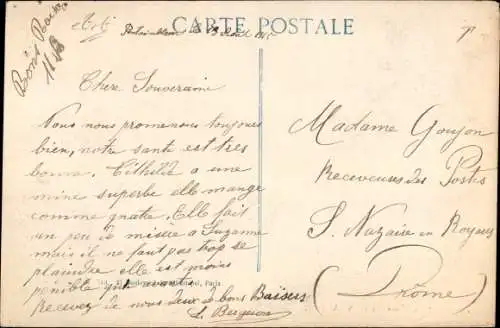 CARTE POSTALE
le 19 Août
Bons Baisers
Chère Souveraine
Nous nous promenons toujours
bien, notre santé est très
bonne. a une
mine superbe elle mange
comme quatre. Elle fait
un peu de misère à Suzanne
mais il ne faut pas trop se
plaindre elle est moins
pénible qu'avant.
Recevez de nous deux de bons Baisers
Madame Goujon
Receveuse des Postes
S. Nazaire en Royans
(Drôme)
Paris